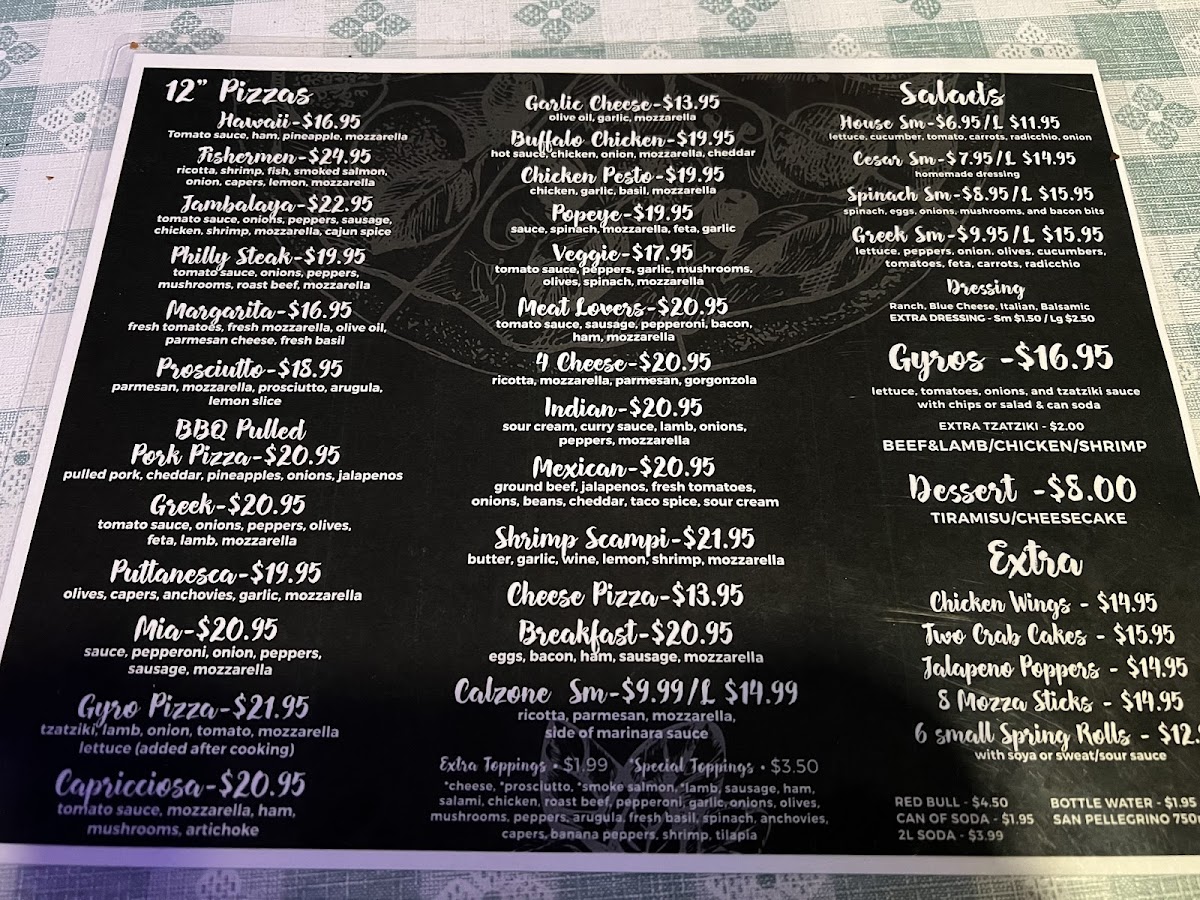 12" Pizzas
Hawaii-$16.95
Tomato sauce, ham, pineapple, mozzarella
Fishermen-$24.95
ricotta, shrimp, fish, smoked salmon,
onion, capers, lemon, mozzarella
Jambalaya-$22.95
tomato sauce, onions, peppers, sausage,
chicken, shrimp, mozzarella, cajun spice
Philly Steak-$19.95
tomato sauce, onions, peppers,
mushrooms, roast beef, mozzarella
Margarita-$16.95
fresh tomatoes, fresh mozzarella, olive oil,
parmesan cheese, fresh basil
Prosciutto-$18.95
parmesan, mozzarella, prosciutto, arugula,
lemon slice
BBQ Pulled
Pork Pizza-$20.95
pulled pork, cheddar, pineapples, onions, jalapenos
Greek-$20.95
tomato sauce, onions, peppers, olives,
feta, lamb, mozzarella
Puttanesca-$19.95
olives, capers, anchovies, garlic, mozzarella
Mia-$20.95
sauce, pepperoni, onion, peppers,
sausage, mozzarella
Gyro Pizza-$21.95
tzatziki, lamb, onion, tomato, mozzarella
lettuce (added after cooking)
Capricciosa-$20.95
tomato sauce, mozzarella, ham,
mushrooms, artichoke
Garlic Cheese-$13.95
olive oil, garlic, mozzarella
Buffalo Chicken-$19.95
hot sauce, chicken, onion, mozzarella, cheddar
Chicken Pesto-$19.95
chicken, garlic, basil, mozzarella
Popeye-$19.95
sauce, spinach, mozzarella, feta, garlic
Veggie-$17.95
tomato sauce, peppers, garlic, mushrooms,
olives, spinach, mozzarella
Meat Lovers-$20.95
tomato sauce, sausage, pepperoni, bacon,
ham, mozzarella
4 Cheese-$20.95
ricotta, mozzarella, parmesan, gorgonzola
Indian-$20.95
sour cream, curry sauce, lamb, onions,
peppers, mozzarella
Mexican-$20.95
ground beef, jalapenos, fresh tomatoes,
onions, beans, cheddar, taco spice, sour cream
Shrimp Scampi-$21.95
butter, garlic, wine, lemon, shrimp, mozzarella
Cheese Pizza-$13.95
Breakfast-$20.95
eggs, bacon, ham, sausage, mozzarella
Calzone Sm-$9.99/L $14.99
ricotta, parmesan, mozzarella,
side of marinara sauce
Extra Toppings • $1.99 *Special Toppings • $3.50
*cheese, *prosciutto, *smoke salmon, *lamb, sausage, ham,
salami, chicken, roast beef, pepperoni, garlic, onions, olives,
mushrooms, peppers, arugula, fresh basil, spinach, anchovies,
capers, banana peppers, shrimp, tilapia
Salads
House Sm-$6.95/L $11.95
lettuce, cucumber, tomato, carrots, radicchio, onion
Cesar Sm-$7.95/L $14.95
homemade dressing
Spinach Sm-$8.95/L $15.95
spinach, eggs, onions, mushrooms, and bacon bits
Greek Sm-$9.95/L $15.95
lettuce, peppers, onion, olives, cucumbers,
tomatoes, feta, carrots, radicchio
Dressing
Ranch, Blue Cheese, Italian, Balsamic
EXTRA DRESSING - Sm $1.50 / Lg $2.50
Gyros -$16.95
lettuce, tomatoes, onions, and tzatziki sauce
with chips or salad & can soda
EXTRA TZATZIKI - $2.00
BEEF&LAMB/CHICKEN/SHRIMP
Dessert -$8.00
TIRAMISU/CHEESECAKE
Extra
Chicken Wings - $14.95
Two Crab Cakes - $15.95
Jalapeno Poppers - $14.95
8 Mozza Sticks - $14.95
6 small Spring Rolls - $12.
with soya or sweat/sour sauce
RED BULL - $4.50
CAN OF SODA - $1.95
2L SODA - $3.99
BOTTLE WATER - $1.95
SAN PELLEGRINO 750